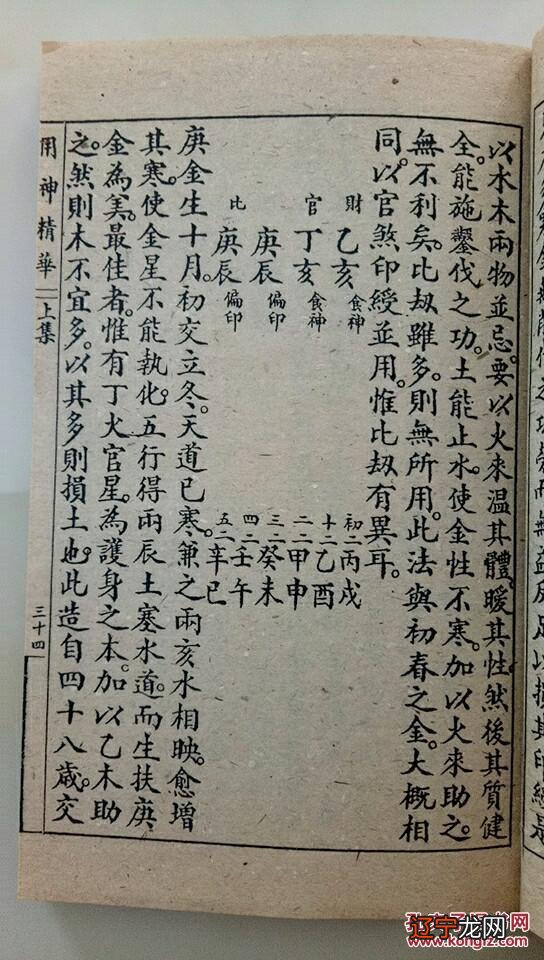 以水木兩物並忌。要以火來温其體。暖其性。然後其質健
全。能施鑿伐之功。土能止水。使金性不寒。加以火來助之。
無不利矣。比刼雖多。則無所用。此法與初春之金。大概相
同。以官煞印綬並用。惟比刼有異耳。
財 乙亥 食神 初二 丙戌
官 丁亥 食神 十二 乙酉
庚辰 偏印 二二 甲申
比 庚辰 偏印 三二 癸未
四二 壬午
五二 辛巳
庚金生十月。初交立冬。天道已寒。兼之兩亥水相映。愈增
其寒。使金星不能執化。五行得兩辰土塞水道。而生扶庚
金為美。最佳者。惟有丁火官星。為護身之本。加以乙木助
之。然則木不宜多。以其多則損土也。此造自四十八歲。交
用神精華 上集 三十四
辽宁龙网
www.kongfz.com